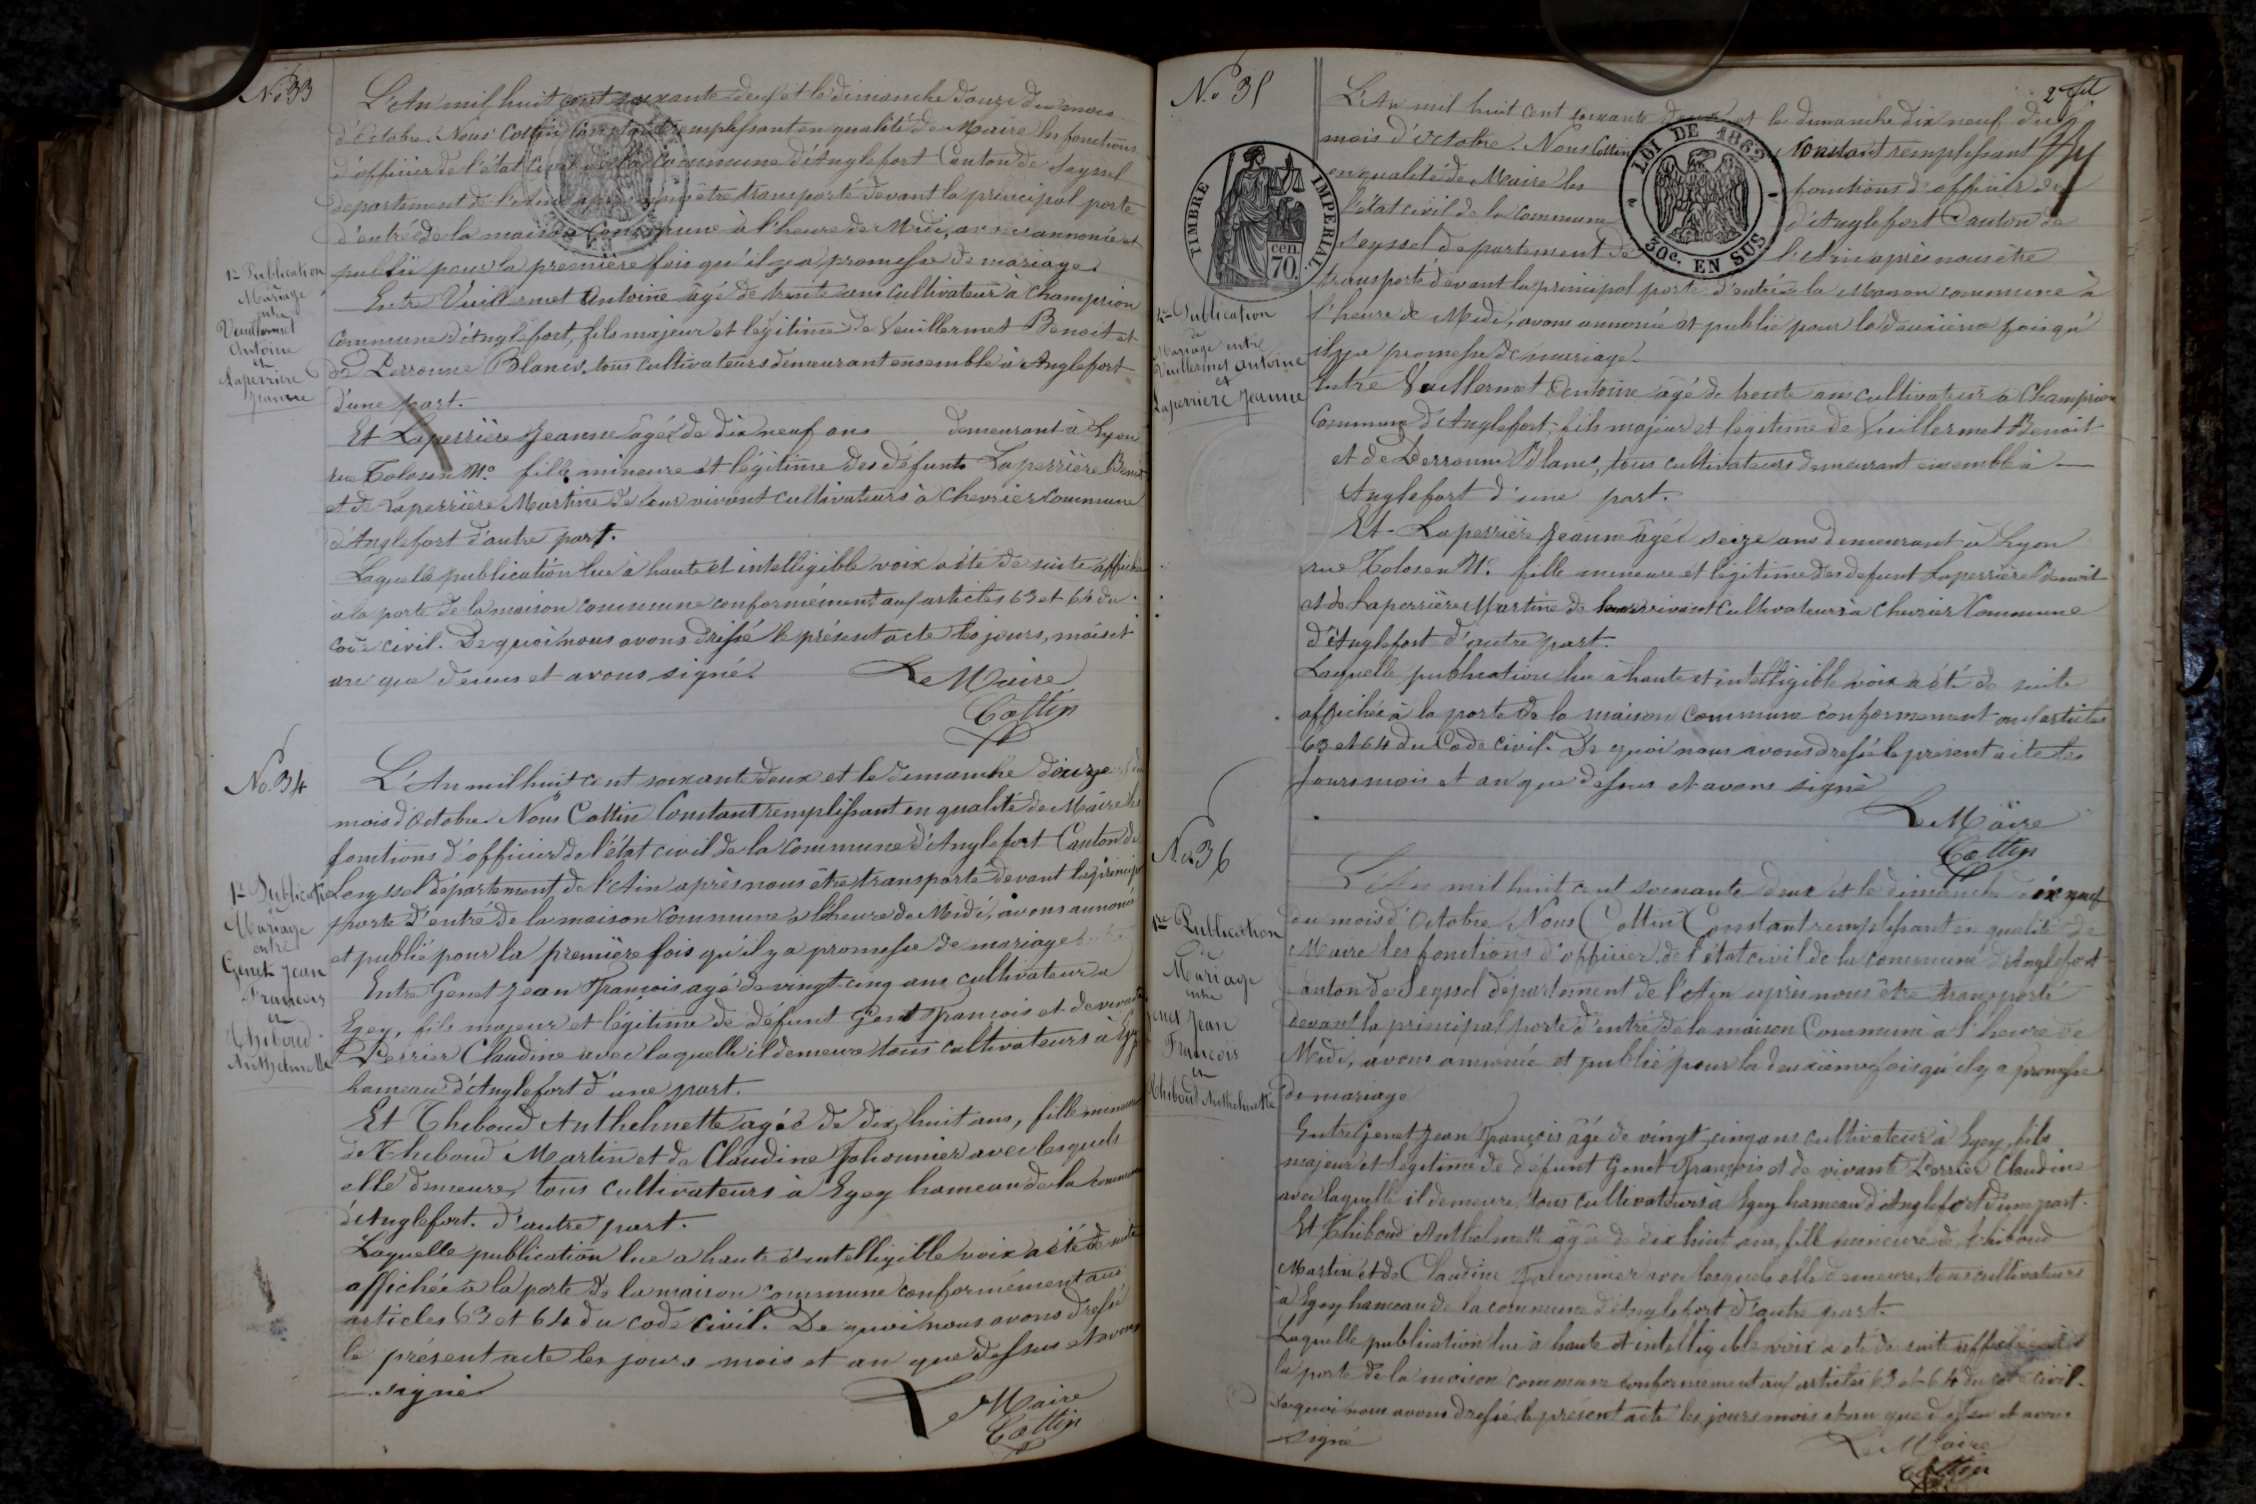 No 33
L'An mil huit cent soixante deux et le dimanche douze du mois
d'Octobre. Nous Cottin Constant remplissant en qualité de Maire les fonctions
d'officier de l'état civil de la Commune d'Anglefort Canton de Seyssel
département de l'Ain après nous être transporté devant la principal porte
d'entrée de la maison Commune à l'heure de Midi, avons annoncé et
publié pour la première fois qu'il y a promesse de mariage.
1re Publication
Mariage
entre
Vuillermet
Antoine
et
Laperrière
Jeanne
Entre Vuillermet Antoine âgé de trente ans cultivateur à Champrion
Commune d'Anglefort, fils majeur et légitime de Vuillermet Benoit et
de Perronne Blanc, tous cultivateurs demeurant ensemble à Anglefort
d'une part.
Et Laperrière Jeanne âgée de dix neuf ans demeurant à Lyon
rue Tolosan No. fille mineure et légitime des défunts Laperrière Benoit
et de Laperrière Martine de leur vivant cultivateurs à Chevrier Commune
d'Anglefort d'autre part.
Laquelle publication lue à haute et intelligible voix a été de suite affichée
à la porte de la maison commune conformément aux articles 63 et 64 du
code civil. De quoi nous avons dressé le présent acte les jours, mois et
an que dessus et avons signé.
Le Maire
Cottin
No. 34
L'An mil huit cent soixante deux et le dimanche douze du
mois d'Octobre Nous Cottin Constant remplissant en qualité de Maire les
fonctions d'officier de l'état civil de la commune d'Anglefort Canton de
Seyssel département de l'Ain après nous être transporté devant la principal
porte d'entré de la maison Commune à l'heure de Midi, avons annoncé
et publié pour la première fois qu'il y a promesse de mariage
1re Publication
Mariage
entre
Genet Jean
François
et
Thiboud
Anthelmette
Entre Genet Jean François agé de vingt-cinq ans cultivateur a
Egey, fils majeur et légitime de défunt Genet François et de vivante
Perrier Claudine avec laquelle il demeure tous cultivateurs à Egey
hameau d'Anglefort d'une part.
Et Thiboud Anthelmette agée de dix huit ans, fille mineure
de Thiboud Martin et de Claudine Jahonnier avec lesquels
elle demeure, tous cultivateurs à Egey hameau de la commune
d'Anglefort. d'autre part.
Laquelle publication lue a haute et intelligible voix a été de suite
affichée à la porte de la maison commune conformément aux
articles 63 et 64 du code civil. De quoi nous avons dressé
le présent acte les jours mois et an que dessus et avons
signé
Le Maire
Cottin
No 35
TIMBRE IMPERIAL.
70. cen.
LOI DE 1862
30c. EN SUS
L'An mil huit cent soixante deux et le dimanche dix neuf du
mois d'Octobre. Nous Cottin Constant remplissant
en qualité de Maire les fonctions d'officier de
l'état civil de la Commune d'Anglefort Canton de
Seyssel département de l'Ain après nous être
transporté devant la principal porte d'entrée de la Maison commune à
l'heure de Midi, avons annoncé et publié pour la deuxième fois qu'
il y a promesse de mariage
Publication
de
Mariage entre
Vuillermet Antoine
et
Laperrière Jeanne
Entre Vuillermet Antoine âgé de trente ans cultivateur à Champrion
Commune d'Anglefort, fils majeur et légitime de Vuillermet Benoit
et de Perronne Blanc, tous cultivateurs demeurant ensemble à
Anglefort d'une part.
Et Laperrière Jeanne âgée seize ans demeurant à Lyon
rue Tolosan No. fille mineure et légitime des defunt Laperrière Benoit
et de Laperrière Martine de leur vivant cultivateurs à Chevrier Commune
d'Anglefort d'autre part.
Laquelle publication lue à haute et intelligible voix a été de suite
affichée à la porte de la maison commune conformement aux articles
63 et 64 du Code civil. De quoi nous avons dressé le présent acte les
jours mois et an que dessus et avons signé
Le Maire
Cottin
No 36
L'An mil huit cent soixante deux et le dimanche dix neuf
du mois d'Octobre Nous Cottin Constant remplissant en qualité de
Maire les fonctions d'officier de l'état civil de la commune d'Anglefort
Canton de Seyssel département de l'Ain après nous être transporté
devant la principal porte d'entré de la maison Commune à l'heure de
Midi, avons annoncé et publié pour la deuxième fois qu'il y a promesse
de mariage
Publication
de
Mariage
entre
Genet Jean
François
et
Thiboud Anthelmette
Entre Genet Jean François âgé de vingt cinq ans cultivateur à Egey, fils
majeur et légitime de défunt Genet François et de vivante Perrier Claudine
avec laquelle il demeure tous cultivateurs à Egey hameau d'Anglefort d'une part.
Et Thiboud Anthelmette âgée de dix huit ans, fille mineure de Thiboud
Martin et de Claudine Jahonnier avec lesquels elle demeure, tous cultivateurs
à Egey hameau de la commune d'Anglefort d'autre part.
Laquelle publication lue à haute et intelligible voix a été de suite affichée à
la porte de la maison commune conformément aux articles 63 et 64 du code civil.
De quoi nous avons dressé le présent acte les jours mois et an que dessus et avons
signé
Le Maire
Cottin